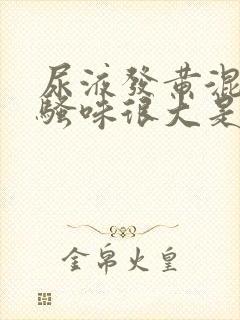 尿液發黄混
騷味很大是
金帛火皇